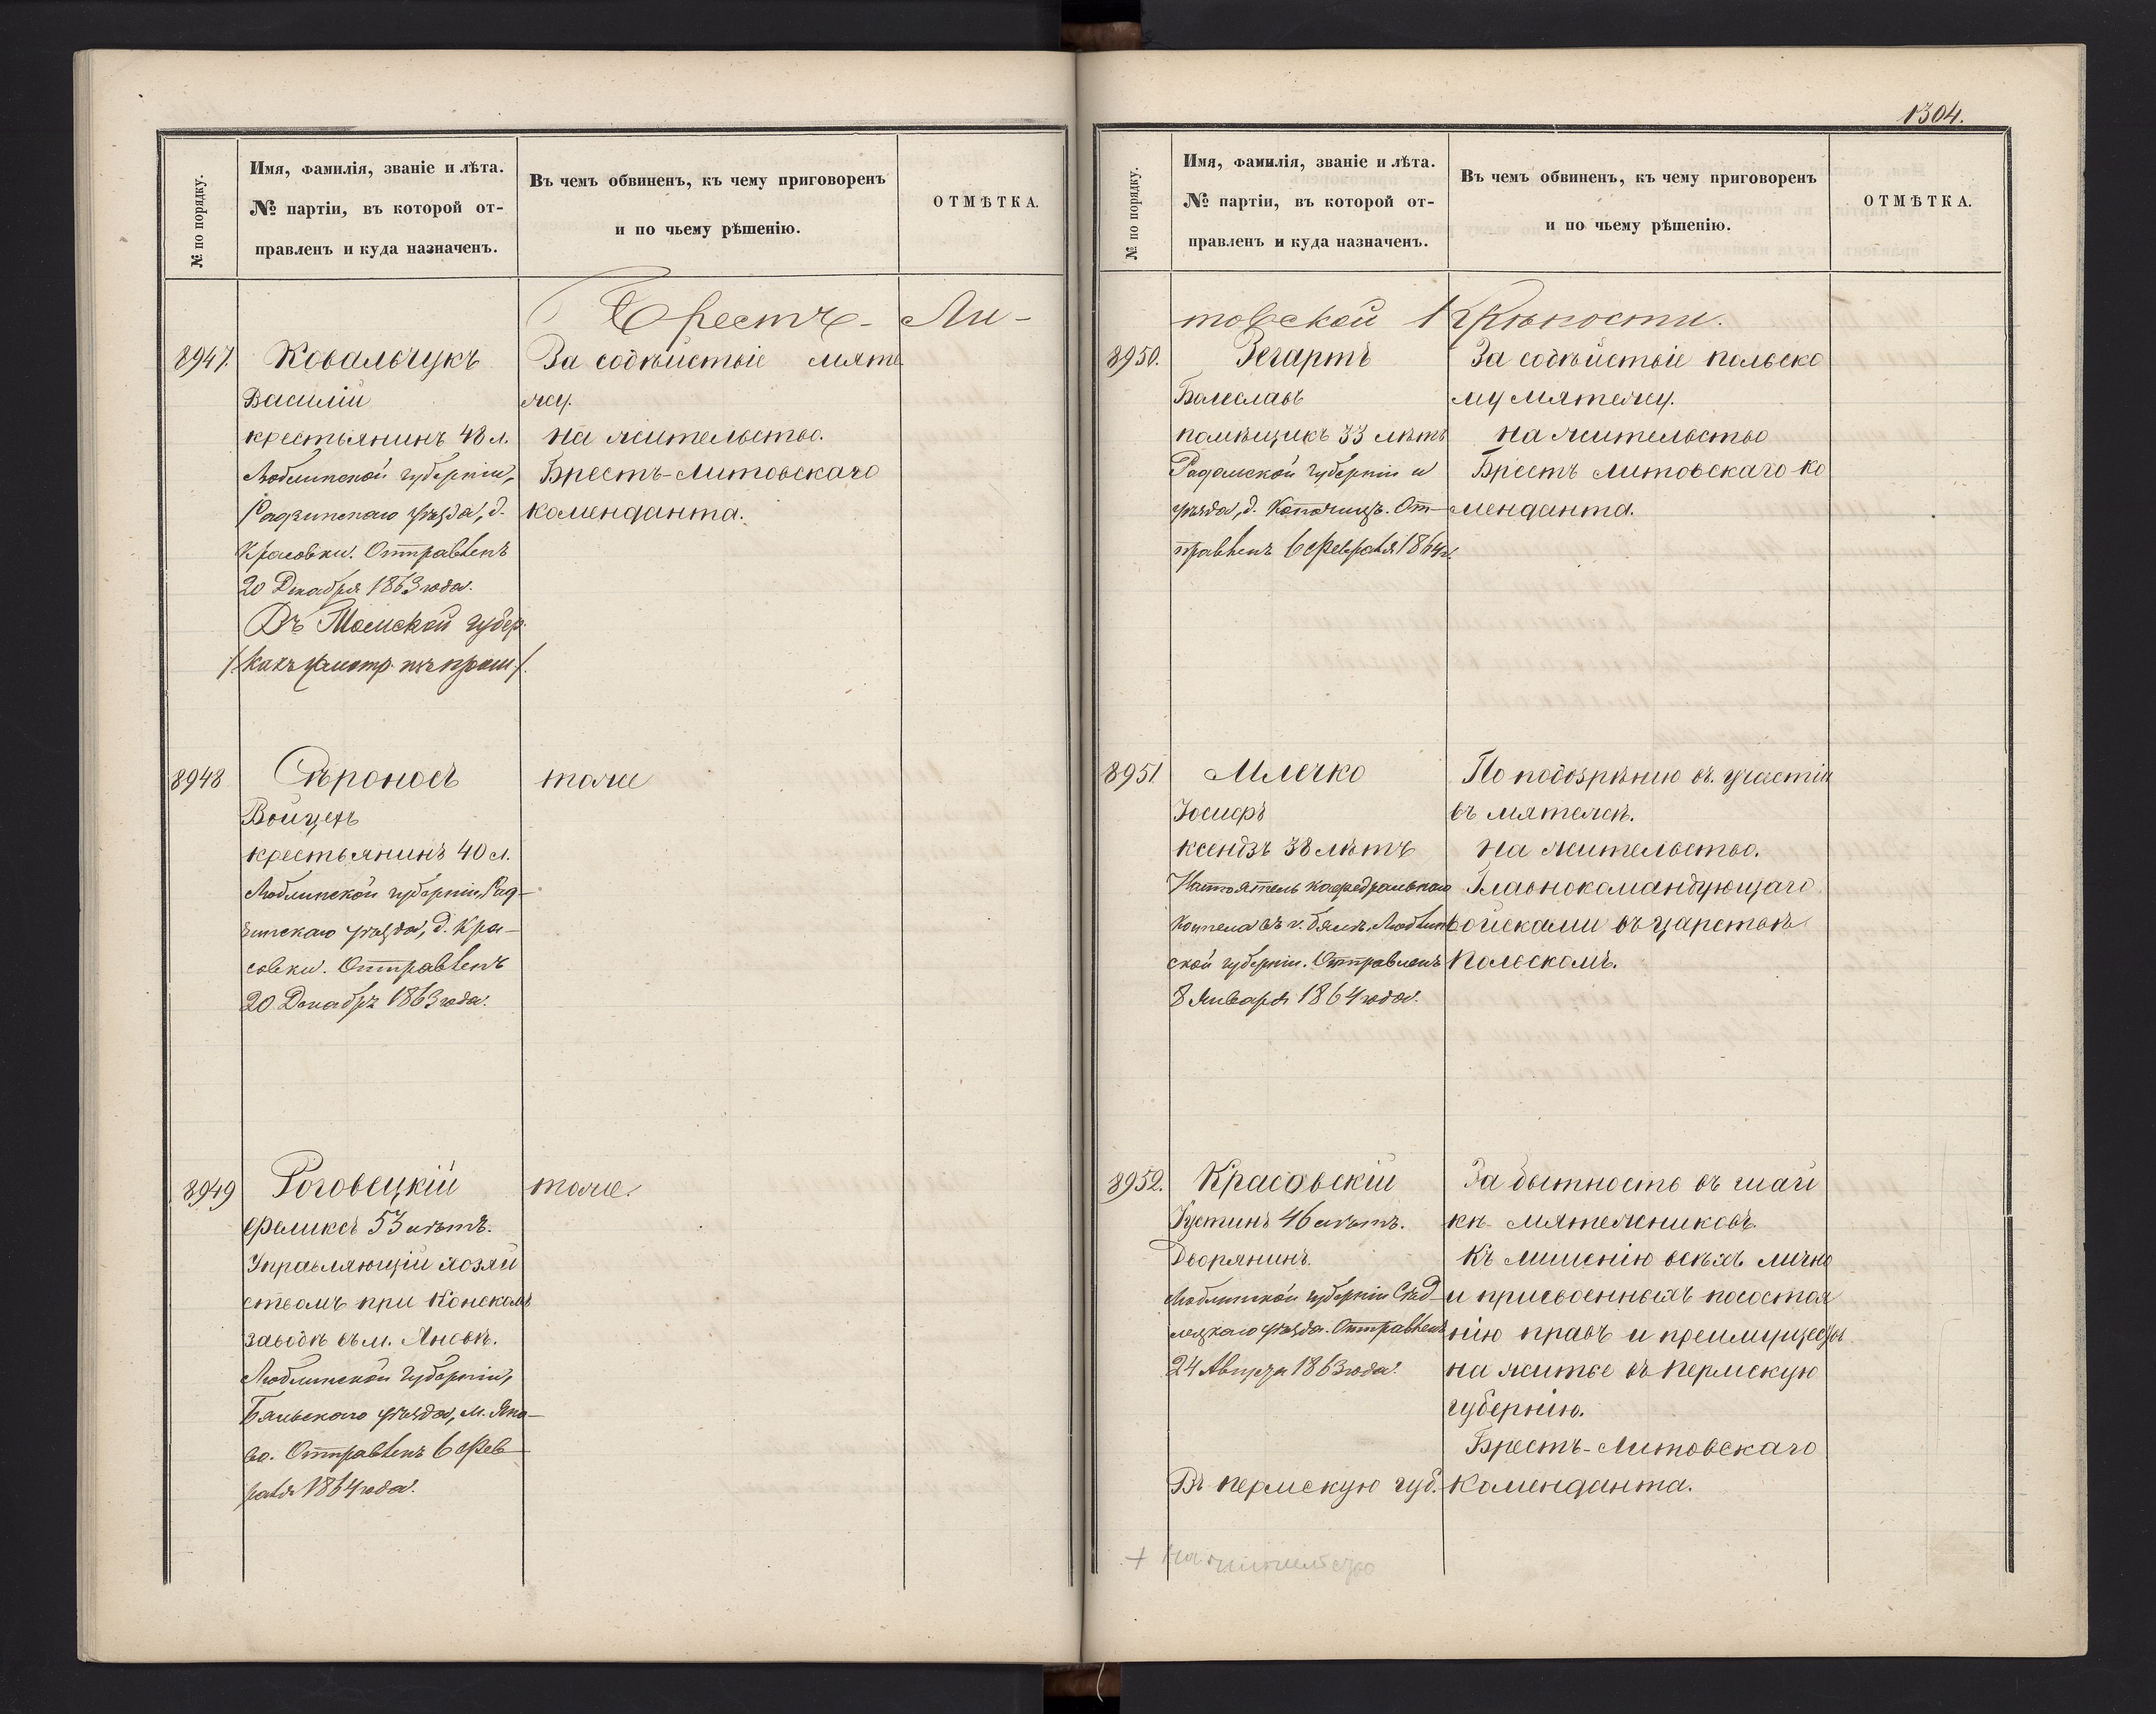 1304.
№ по порядку.
Имя, фамилія, званіе и лѣта.
№ партіи, въ которой от-
правленъ и куда назначенъ.
Въ чемъ обвиненъ, къ чему приговоренъ
и по чьему рѣшенію.
ОТМѢТКА.
Брестъ- Ли-
8947. Ковальчукъ
Василій
крестьянинъ 48 л.
Люблинской губерніи,
Радзинскаго уѣзда, д.
Красовки. Отправленъ
20 Декабря 1863 года.
Въ Томской губер.
/какъ усмотр. изъ прош./.
За содѣйствіе мяте
жу.
на жительство.
Брестъ-Литовскаго
коменданта.
8948 Сѣроносъ
Войцехъ
крестьянинъ 40 л.
Люблинской губерніи, Рад-
зинскаго уѣзда, д. Кра-
совки. Отправленъ
20 Декабря 1863 года.
тоже
8949 Роговецкій
Феликсъ 53 лѣтъ.
Управляющій хозяй
ствомъ при Конскомъ
заводѣ въ м. Яновѣ.
Люблинской губерніи,
Бяльскаго уѣзда, м. Яно-
во. Отправленъ 6 Фев-
раля 1864 года.
тоже.
№ по порядку.
Имя, фамилія, званіе и лѣта.
№ партіи, въ которой от-
правленъ и куда назначенъ.
Въ чемъ обвиненъ, къ чему приговоренъ
и по чьему рѣшенію.
ОТМѢТКА.
товской Крѣпости.
8950. Зегартъ
Болеславъ
помѣщикъ 33 лѣтъ
Радомской губерніи и
уѣзда, д. От-
правленъ 6 Февраля 1864 г.
За содѣйствіе польско
му мятежу.
на жительство
Брестъ Литовскаго ко
менданта.
8951 Млечко
Іосифъ
ксендзъ 38 лѣтъ
Настоятель кафедральнаго
костела въ г. Бялѣ, Люблин
ской губерніи. Отправленъ
8 Января 1864 года.
По подозрѣнію въ участіи
въ мятежѣ.
На жительство.
Главнокомандующаго
войсками въ царствѣ
Польскомъ.
8952. Красовскій
Густинъ 46 лѣтъ.
Дворянинъ.
Люблинской губерніи Сѣд-
лецкаго уѣзда. Отправленъ
24 Августа 1863 года.
Въ Пермскую губ.
За бытность въ шай
кѣ мятежниковъ.
Къ лишенію всѣхъ лично
и присвоенныхъ по состоя
нію правъ и преимуществъ
на житье въ Пермскую
губернію.
Брестъ-Литовскаго
Коменданта.
+ На жительство